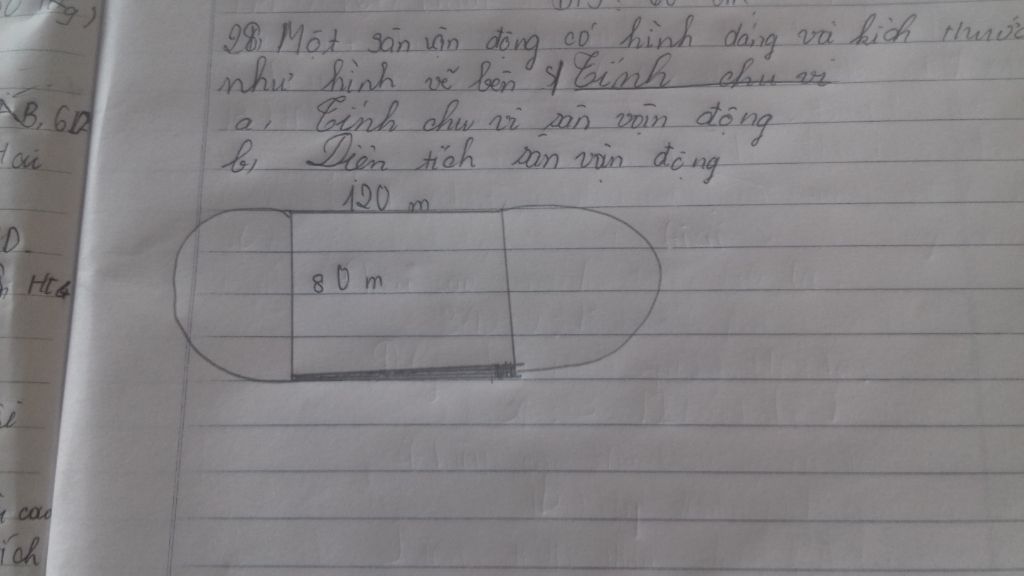 g,)
28, Một sân vận động có hình dáng và kích thước
như hình vẽ bên Tính chu vi
AB, 6D
a, Tính chu vi sân vận động
b, Diện tích sân vận động
120 m
D
80 m
cao
ích